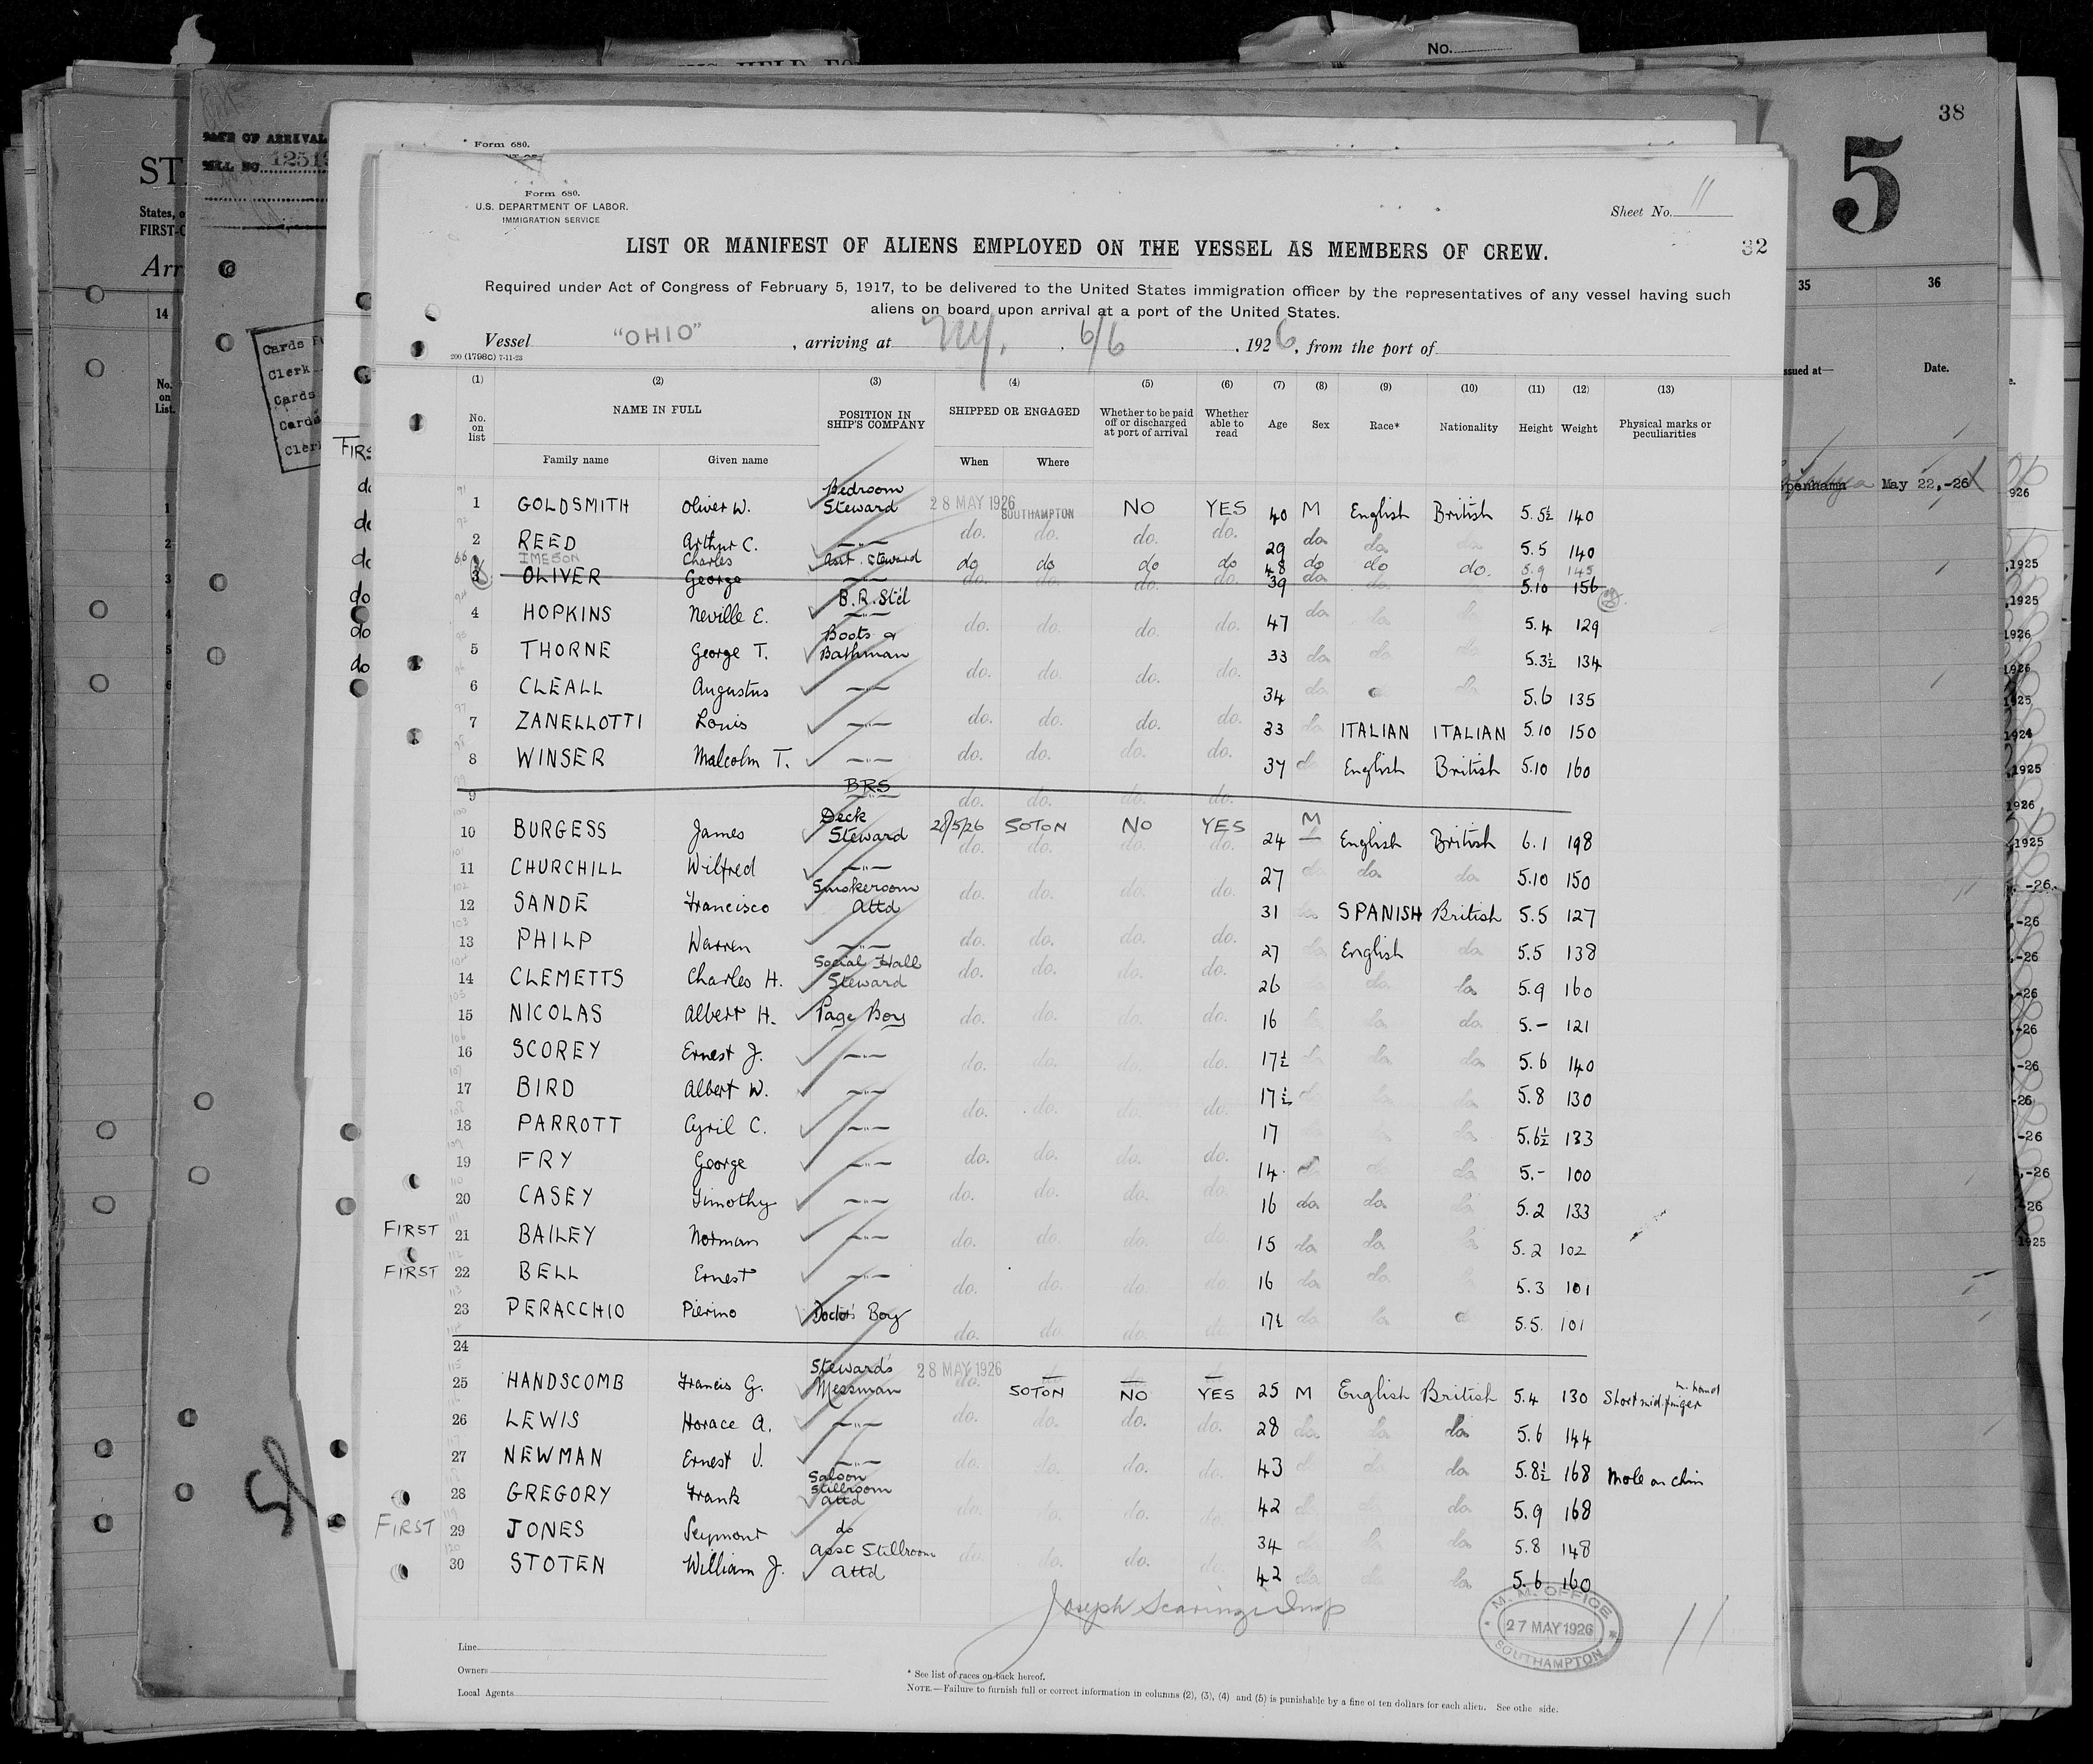 No.
38
5
DATE OF ARRIVAL
States, o
FIRST-C
Arr
14
No.
on
List.
Cards
Clerk
Cards
Cards
Cler
35
36
ssued at—
Date.
May 22,-26
Form 680.
Form 680.
U.S. DEPARTMENT OF LABOR.
IMMIGRATION SERVICE
Sheet No. 11
32
LIST OR MANIFEST OF ALIENS EMPLOYED ON THE VESSEL AS MEMBERS OF CREW.
Required under Act of Congress of February 5, 1917, to be delivered to the United States immigration officer by the representatives of any vessel having such
aliens on board upon arrival at a port of the United States.
Vessel "OHIO", arriving at NY, 6/6, 1926, from the port of
200 (1798c) 7-11-23
(1) (2) (3) (4) (5) (6) (7) (8) (9) (10) (11) (12) (13)
No. on list NAME IN FULL POSITION IN SHIP'S COMPANY SHIPPED OR ENGAGED Whether to be paid off or discharged at port of arrival Whether able to read Age Sex Race* Nationality Height Weight Physical marks or peculiarities
Family name Given name When Where
1 GOLDSMITH Oliver W. Bedroom Steward 28 MAY 1926 SOUTHAMPTON NO YES 40 M English British 5.5½ 140
2 REED Arthur C. —"— do. do. do. do. 29 do do do 5.5 140
66 IMESON Charles Asst. Steward do do do do 48 do do do. 5.9 145
3 OLIVER George —"— do. do. do. do. 39 do do. 5.10 156
4 HOPKINS Neville E. B.R.Std —"— do. do. do. do. 47 do do do 5.4 129
5 THORNE George T. Boots & Bathman 33 do do do 5.3½ 134
6 CLEALL Augustus —"— do. do. do. do. 34 do do 5.6 135
7 ZANELLOTTI Louis —"— do. do. do. do. 33 do ITALIAN ITALIAN 5.10 150
8 WINSER Malcolm T. —"— do. do. do. do. 37 do English British 5.10 160
9 BRS do. do. do. do.
10 BURGESS James Deck Steward 28/5/26 SOTON NO YES 24 M English British 6.1 198
do. do. do. do.
11 CHURCHILL Wilfred —"— 27 do do do 5.10 150
12 SANDE Francisco Smokeroom Attd do. do. do. do. 31 do SPANISH British 5.5 127
13 PHILP Warren —"— do. do. do. do. 27 do English do 5.5 138
14 CLEMETTS Charles H. Social Hall Steward do. do. do. do. 26 do do 5.9 160
15 NICOLAS Albert H. Page Boy do. do. do. do. 16 do do 5.- 121
16 SCOREY Ernest J. —"— do. do. do. do. 17½ do do do 5.6 140
17 BIRD Albert W. —"— 17½ do do do 5.8 130
18 PARROTT Cyril C. —"— do. do. do. do. 17 do do 5.6½ 133
19 FRY George —"— do. do. do. do. 14 do do do 5.- 100
20 CASEY Timothy —"— do. do. do. do. 16 do do do 5.2 133
FIRST 21 BAILEY Norman —"— do. do. do. do. 15 do do do 5.2 102
FIRST 22 BELL Ernest —"— do. do. do. do. 16 do do 5.3 101
23 PERACCHIO Pierino Doctors Boy 17½ do do do 5.5. 101
24 do. do. do. do.
25 HANDSCOMB Francis G. Steward's Messman 28 MAY 1926 SOTON NO YES 25 M English British 5.4 130 Short mid. finger
26 LEWIS Horace A. —"— do. do. do. do. 28 do do do 5.6 144
27 NEWMAN Ernest V. —"— do. do. do. do. 43 do do do 5.8½ 168 Mole on chin
28 GREGORY Frank Saloon Stillroom Attd do. do. do. do. 42 do do do 5.9 168
FIRST 29 JONES Seymour do 34 do do do 5.8 148
30 STOTEN William J. Asst Stillroom Attd do. do. do. do. 42 do do do 5.6 160
Joseph Scaringi Insp
M.M. OFFICE
27 MAY 1926
SOUTHAMPTON
11
Line
Owners
Local Agents
* See list of races on back hereof.
NOTE.—Failure to furnish full or correct information in columns (2), (3), (4) and (5) is punishable by a fine of ten dollars for each alien. See othe side.